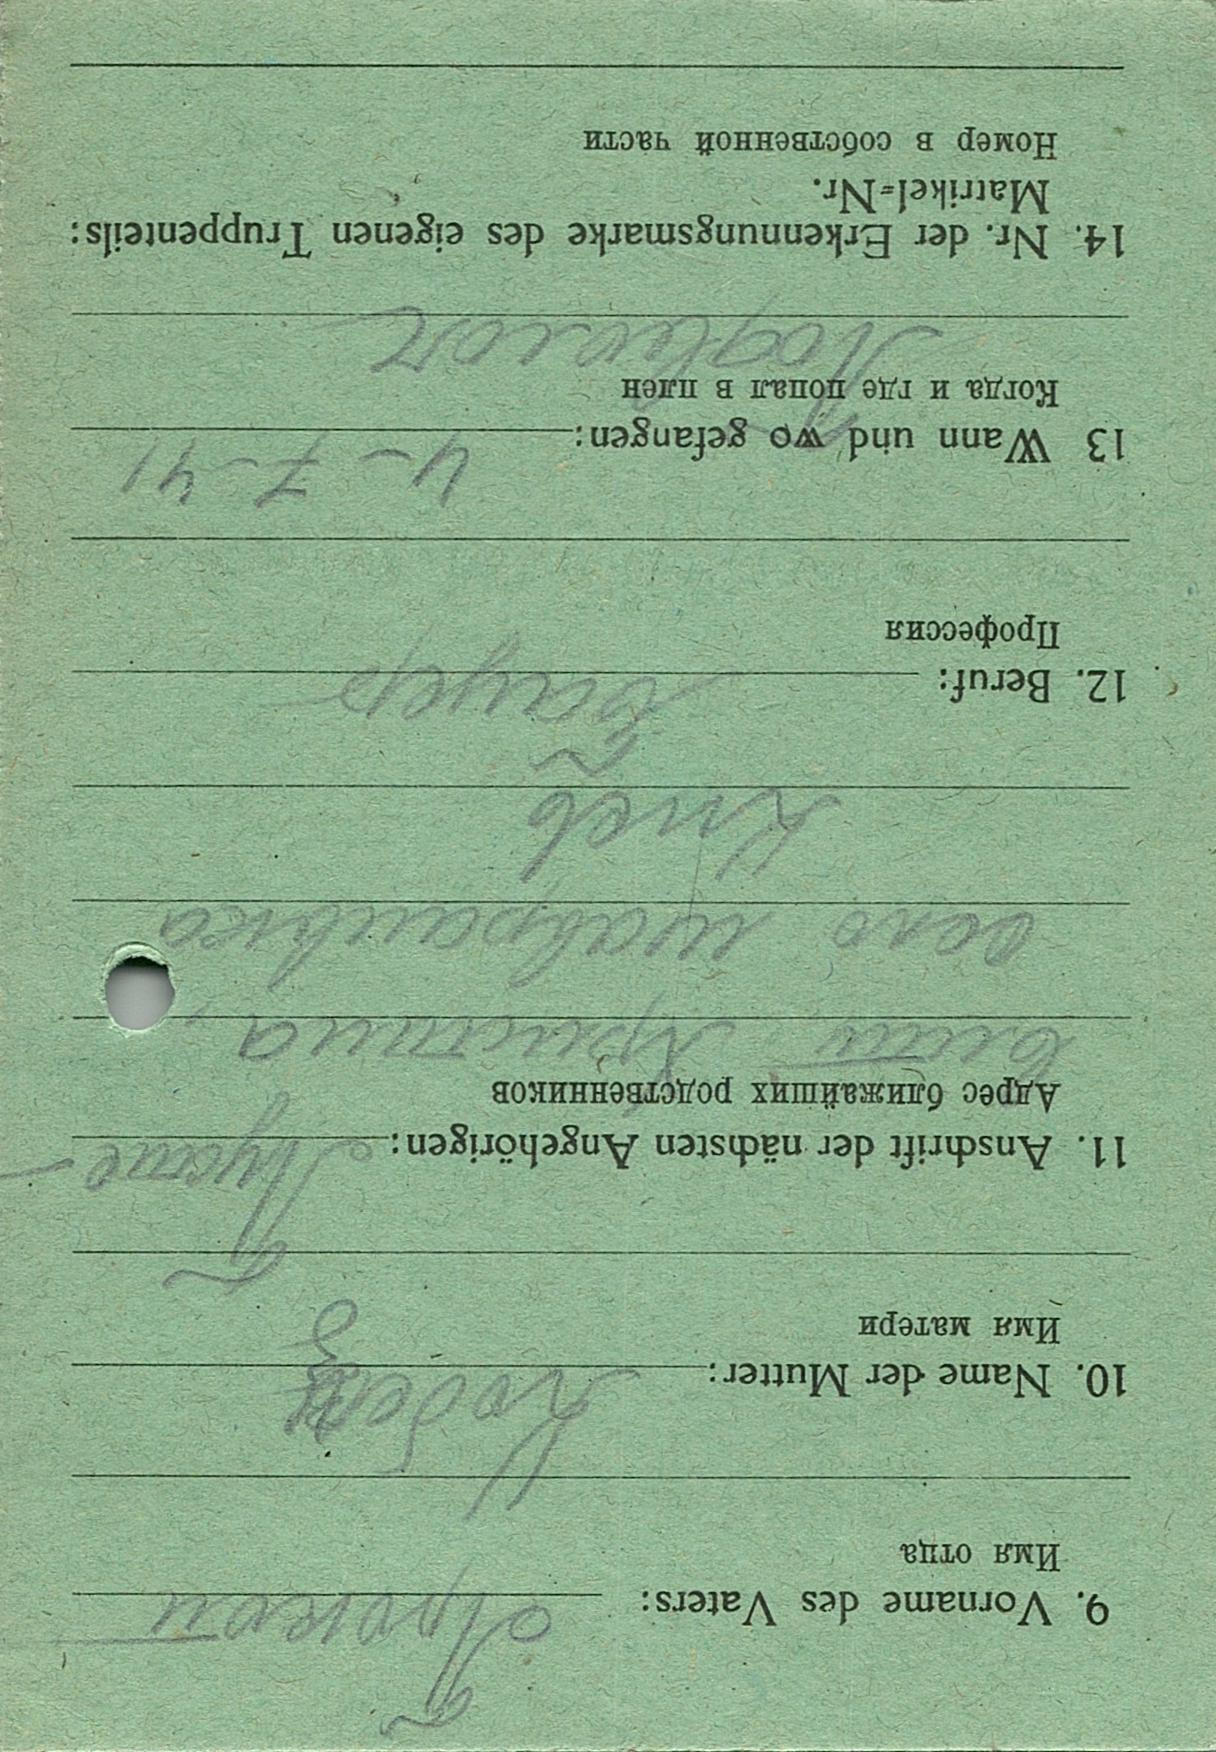 9. Vorname des Vaters: Прокоп
Имя отца
10. Name der Mutter:
Имя матери
11. Anschrift der nächsten Angehörigen:
Адрес ближайших родственников
Христина,
село
Киев
12. Beruf: бауер
Профессия
13 Wann und wo gefangen: 4-7-41
Когда и где попал в плен
14. Nr. der Erkennungsmarke des eigenen Truppenteils:
Matrikel-Nr.
Номер в собственной части